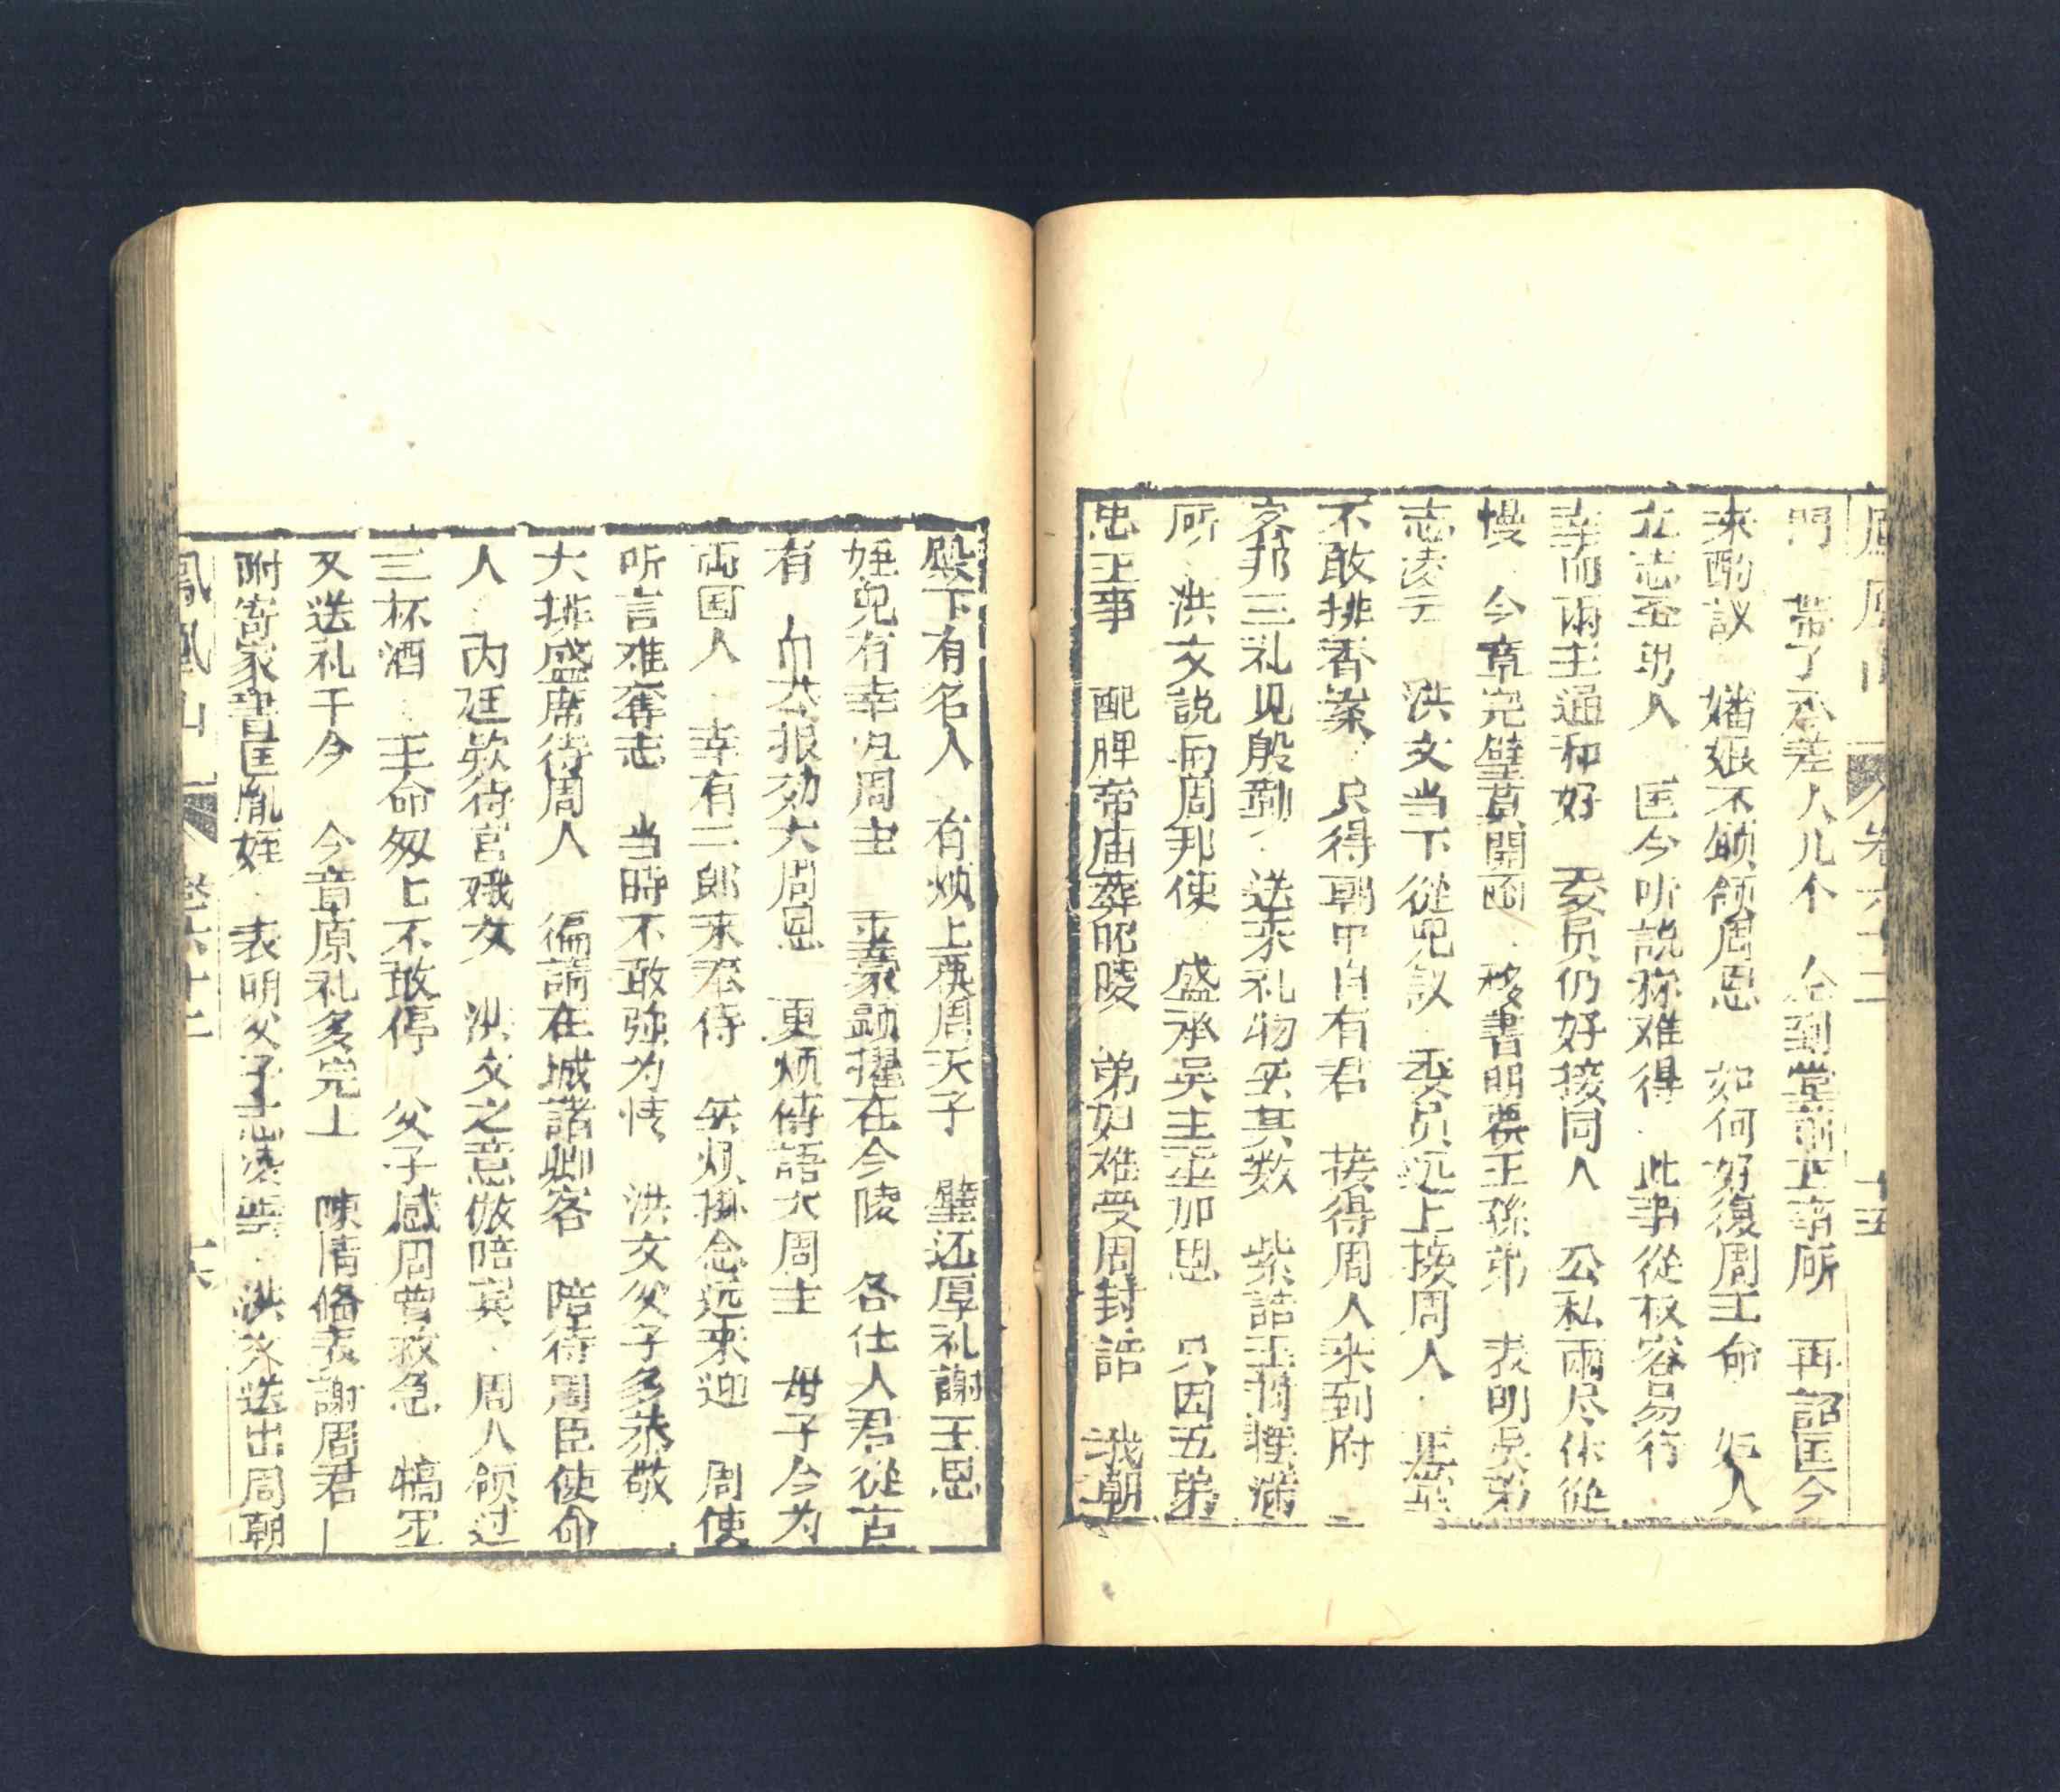 鳳凰山 卷六十二 十五
門 帶了承差人几个 仝到堂前正帝所 再詔匡今
來酌議 嬸娘不願領周恩 如何好復周王命 妃人
立志至明人 匡今听說称难得 此事從权容易行
幸而兩主通和好 委員仍好接同人 公私兩尽休從
慢 今章完璧莫開函 移書明奏王孫弟 表明吳弟
志凌云 洪文当下從兄议 委员远上接周人
不敢排香案 只得朝中自有君 接得周人來到府 二
客邦三礼见殷勤 送來礼物无其数 紫誥玉
所 洪文説与周邦使 盛承吳主並加恩 只因五弟
忠王事 配脾帝庙葬昭陵 弟妇难受周封誥 我朝
殿下有名人 有煩上奏周天子 璧还厚礼謝王恩
姪兒有幸見周主 蒙顕擢在今陵 各仕人君從古
有 犬狼効大周恩 更煩傳語大周主 母子今为
両国人 幸有二郎來奉侍 无煩掛念远來迎 周使
听言难奪志 当時不敢強为情 洪文父子多恭敬
大排盛席待周人 徧請在城諸卿客 陪待周臣使命
人 内廷欵待宮娥女 洪文之意做陪宾 周人领过
三杯酒 王命匆匕不敢停 父子感周曾救急 犒
又送礼千今 今章原礼多完上 陳情偹表謝周君
附寄家書匡胤姪 表明父子志凌雲 洪文送出周朝
鳳凰山 卷六十二 十六